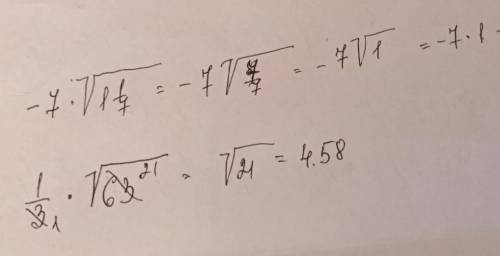 -7 · √(1 1/7) = -7 √(7/7) = -7 √1 = -7 · 1
1/3 1 · √63 21 = √21 = 4.58